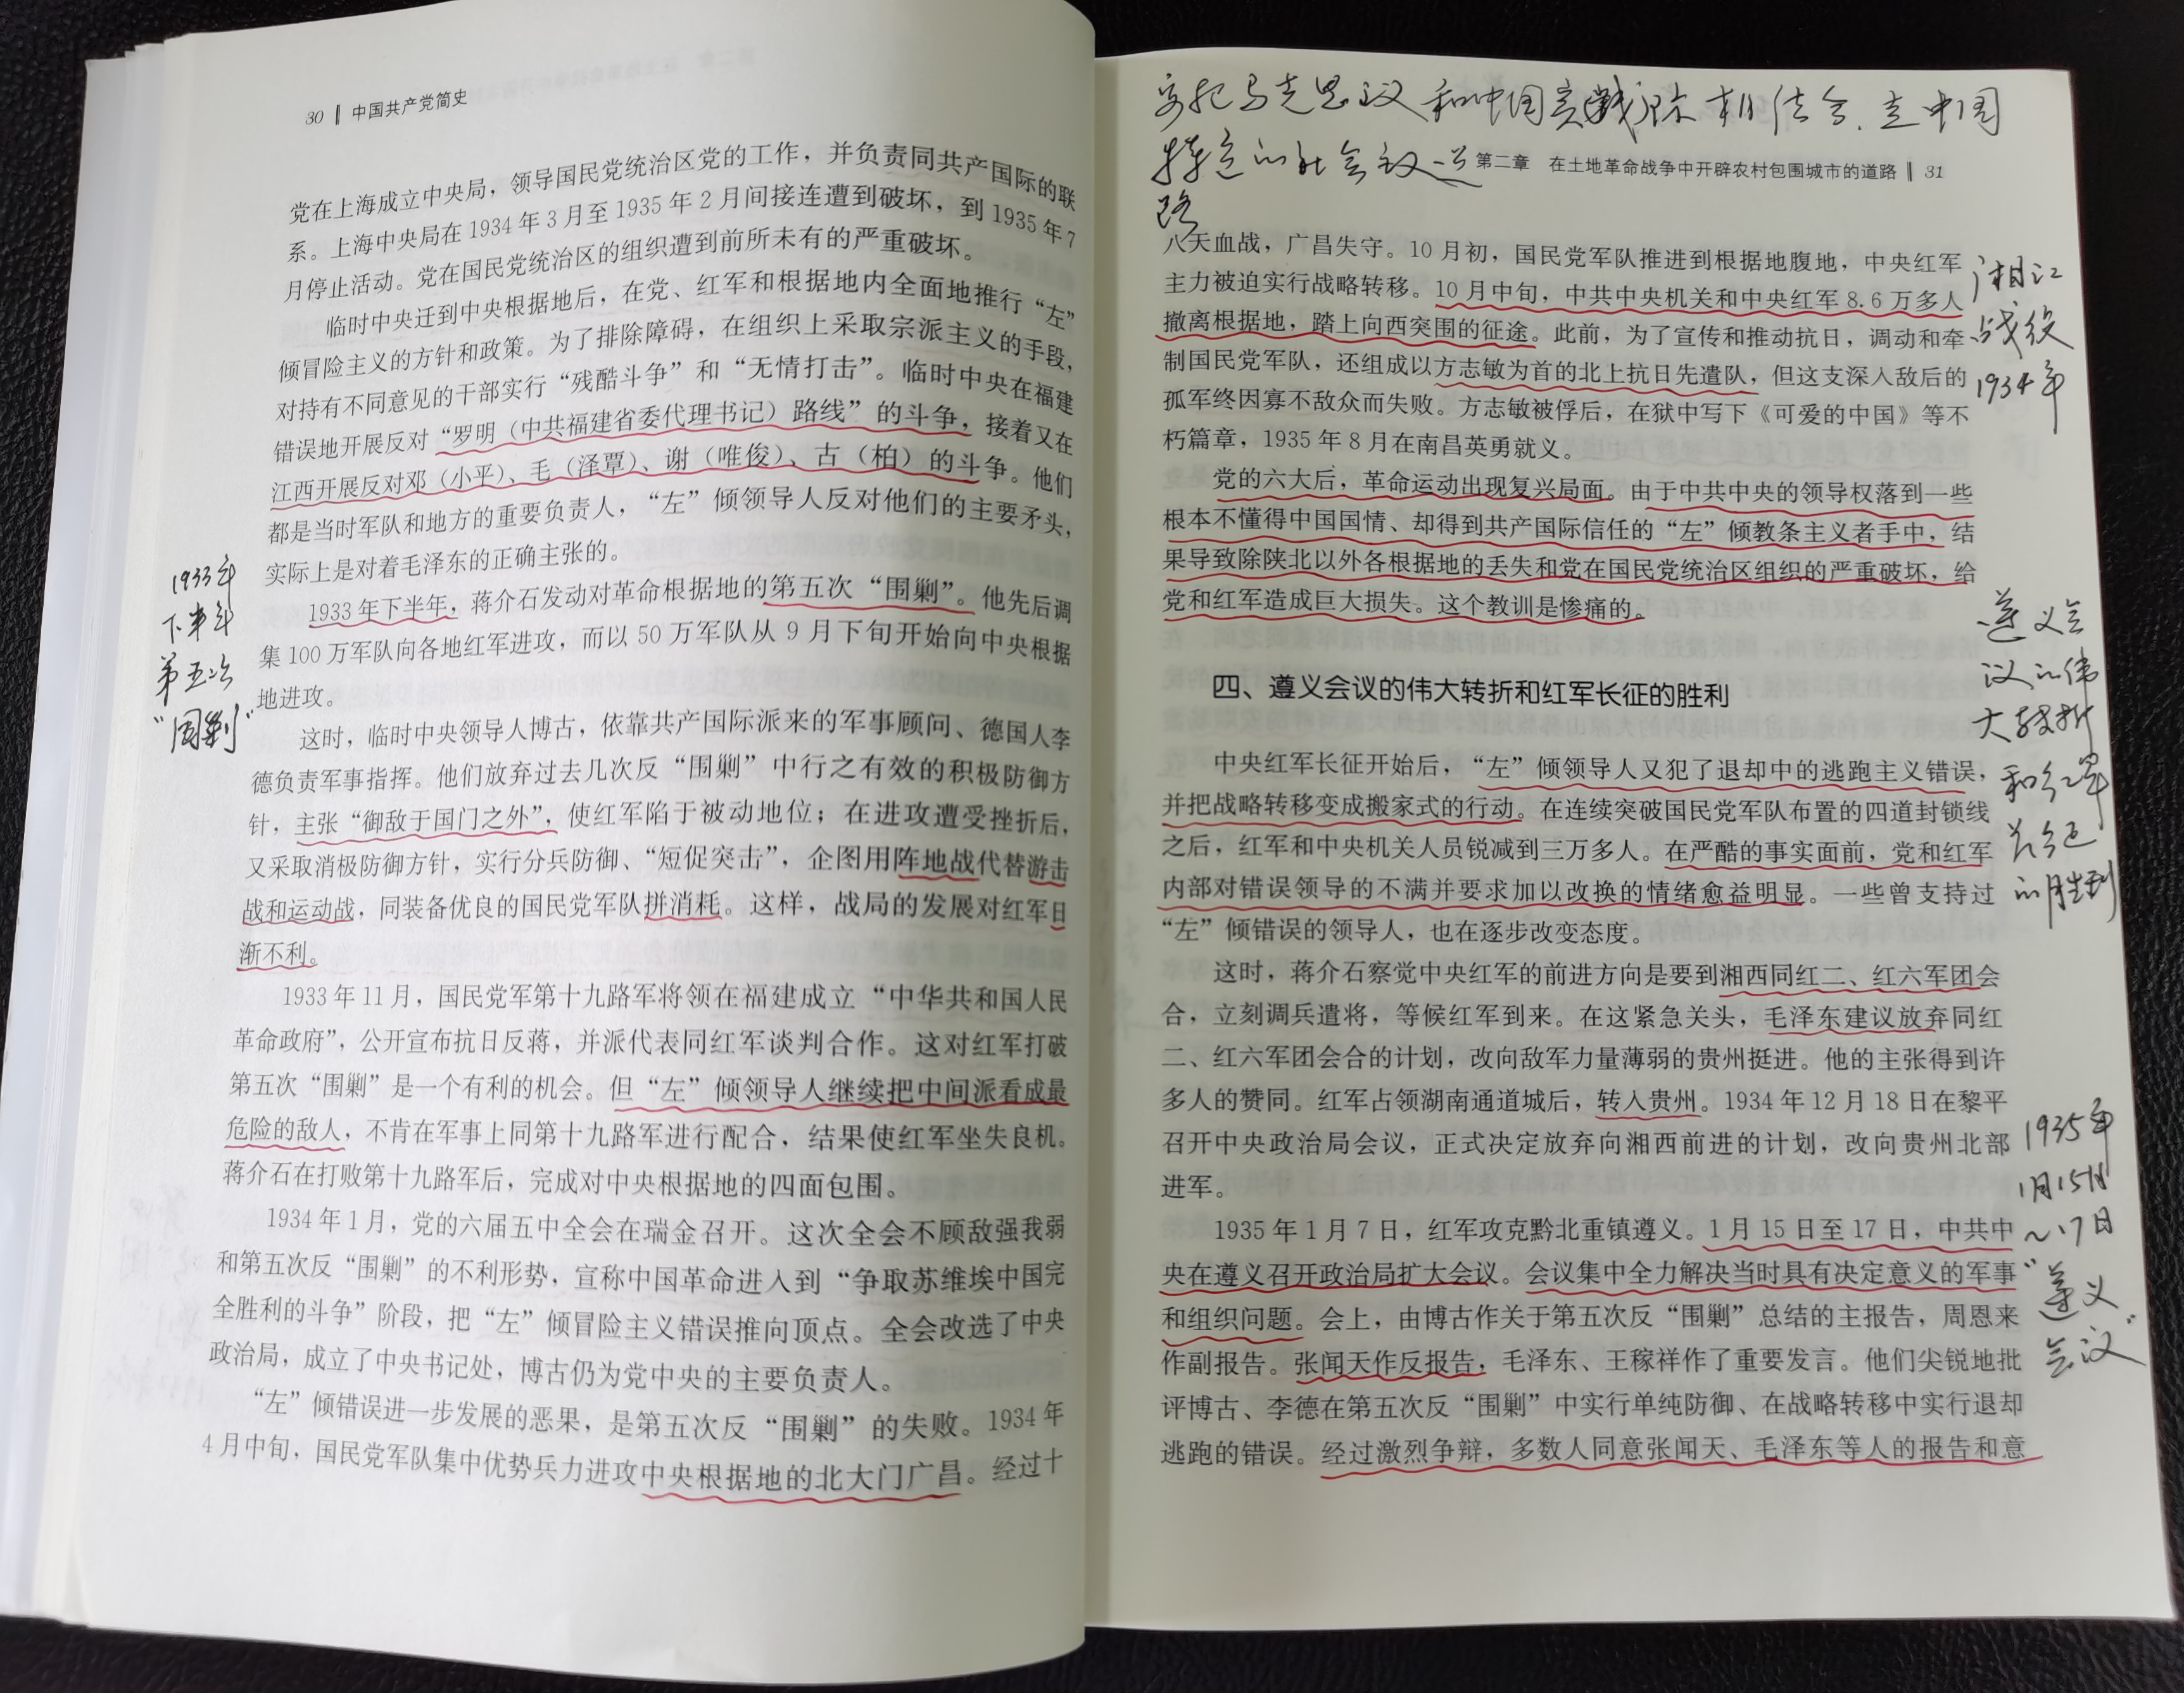 30 ‖ 中国共产党简史
党在上海成立中央局，领导国民党统治区党的工作，并负责同共产国际的联
系。上海中央局在1934年3月至1935年2月间接连遭到破坏，到1935年7
月停止活动。党在国民党统治区的组织遭到前所未有的严重破坏。
临时中央迁到中央根据地后，在党、红军和根据地内全面地推行“左”
倾冒险主义的方针和政策。为了排除障碍，在组织上采取宗派主义的手段，
对持有不同意见的干部实行“残酷斗争”和“无情打击”。临时中央在福建
错误地开展反对“罗明（中共福建省委代理书记）路线”的斗争，接着又在
江西开展反对邓（小平）、毛（泽覃）、谢（唯俊）、古（柏）的斗争。他们
都是当时军队和地方的重要负责人，“左”倾领导人反对他们的主要矛头，
实际上是对着毛泽东的正确主张的。
1933年下半年，蒋介石发动对革命根据地的第五次“围剿”。他先后调
集100万军队向各地红军进攻，而以50万军队从9月下旬开始向中央根据
地进攻。
这时，临时中央领导人博古，依靠共产国际派来的军事顾问、德国人李
德负责军事指挥。他们放弃过去几次反“围剿”中行之有效的积极防御方
针，主张“御敌于国门之外”，使红军陷于被动地位；在进攻遭受挫折后，
又采取消极防御方针，实行分兵防御、“短促突击”，企图用阵地战代替游击
战和运动战，同装备优良的国民党军队拼消耗。这样，战局的发展对红军日
渐不利。
1933年11月，国民党军第十九路军将领在福建成立“中华共和国人民
革命政府”，公开宣布抗日反蒋，并派代表同红军谈判合作。这对红军打破
第五次“围剿”是一个有利的机会。但“左”倾领导人继续把中间派看成最
危险的敌人，不肯在军事上同第十九路军进行配合，结果使红军坐失良机。
蒋介石在打败第十九路军后，完成对中央根据地的四面包围。
1934年1月，党的六届五中全会在瑞金召开。这次全会不顾敌强我弱
和第五次反“围剿”的不利形势，宣称中国革命进入到“争取苏维埃中国完
全胜利的斗争”阶段，把“左”倾冒险主义错误推向顶点。全会改选了中央
政治局，成立了中央书记处，博古仍为党中央的主要负责人。
“左”倾错误进一步发展的恶果，是第五次反“围剿”的失败。1934年
4月中旬，国民党军队集中优势兵力进攻中央根据地的北大门广昌。经过十
1933年
下半年
第五次
“围剿”
要把马克思主义和中国实际相结合、走中国
特色的社会主义道
路
第二章 在土地革命战争中开辟农村包围城市的道路 ‖ 31
八天血战，广昌失守。10月初，国民党军队推进到根据地腹地，中央红军
主力被迫实行战略转移。10月中旬，中共中央机关和中央红军8.6万多人
撤离根据地，踏上向西突围的征途。此前，为了宣传和推动抗日，调动和牵
制国民党军队，还组成以方志敏为首的北上抗日先遣队，但这支深入敌后的
孤军终因寡不敌众而失败。方志敏被俘后，在狱中写下《可爱的中国》等不
朽篇章，1935年8月在南昌英勇就义。
党的六大后，革命运动出现复兴局面。由于中共中央的领导权落到一些
根本不懂得中国国情、却得到共产国际信任的“左”倾教条主义者手中，结
果导致除陕北以外各根据地的丢失和党在国民党统治区组织的严重破坏，给
党和红军造成巨大损失。这个教训是惨痛的。
四、遵义会议的伟大转折和红军长征的胜利
中央红军长征开始后，“左”倾领导人又犯了退却中的逃跑主义错误，
并把战略转移变成搬家式的行动。在连续突破国民党军队布置的四道封锁线
之后，红军和中央机关人员锐减到三万多人。在严酷的事实面前，党和红军
内部对错误领导的不满并要求加以改换的情绪愈益明显。一些曾支持过
“左”倾错误的领导人，也在逐步改变态度。
这时，蒋介石察觉中央红军的前进方向是要到湘西同红二、红六军团会
合，立刻调兵遣将，等候红军到来。在这紧急关头，毛泽东建议放弃同红
二、红六军团会合的计划，改向敌军力量薄弱的贵州挺进。他的主张得到许
多人的赞同。红军占领湖南通道城后，转入贵州。1934年12月18日在黎平
召开中央政治局会议，正式决定放弃向湘西前进的计划，改向贵州北部
进军。
1935年1月7日，红军攻克黔北重镇遵义。1月15日至17日，中共中
央在遵义召开政治局扩大会议。会议集中全力解决当时具有决定意义的军事
和组织问题。会上，由博古作关于第五次反“围剿”总结的主报告，周恩来
作副报告。张闻天作反报告，毛泽东、王稼祥作了重要发言。他们尖锐地批
评博古、李德在第五次反“围剿”中实行单纯防御、在战略转移中实行退却
逃跑的错误。经过激烈争辩，多数人同意张闻天、毛泽东等人的报告和意
湘江
战役
1934年
遵义会
议的伟
大转折
和红军
长征
的胜利
1935年
1月15日
～17日
“遵义
会议”